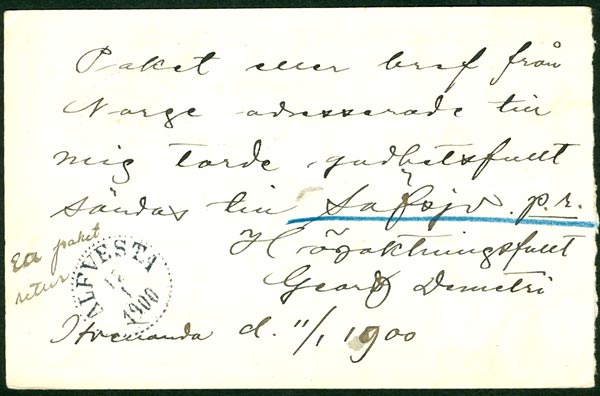 Paket eller bref från
Norge adresserade till
mig torde godhetsfullt
sändas till Säfsjö. p.r.
Högaktningsfullt
Georg Demetri
d. 11/1 1900
Ett paket
retur
ALFVESTA
12
1
1900